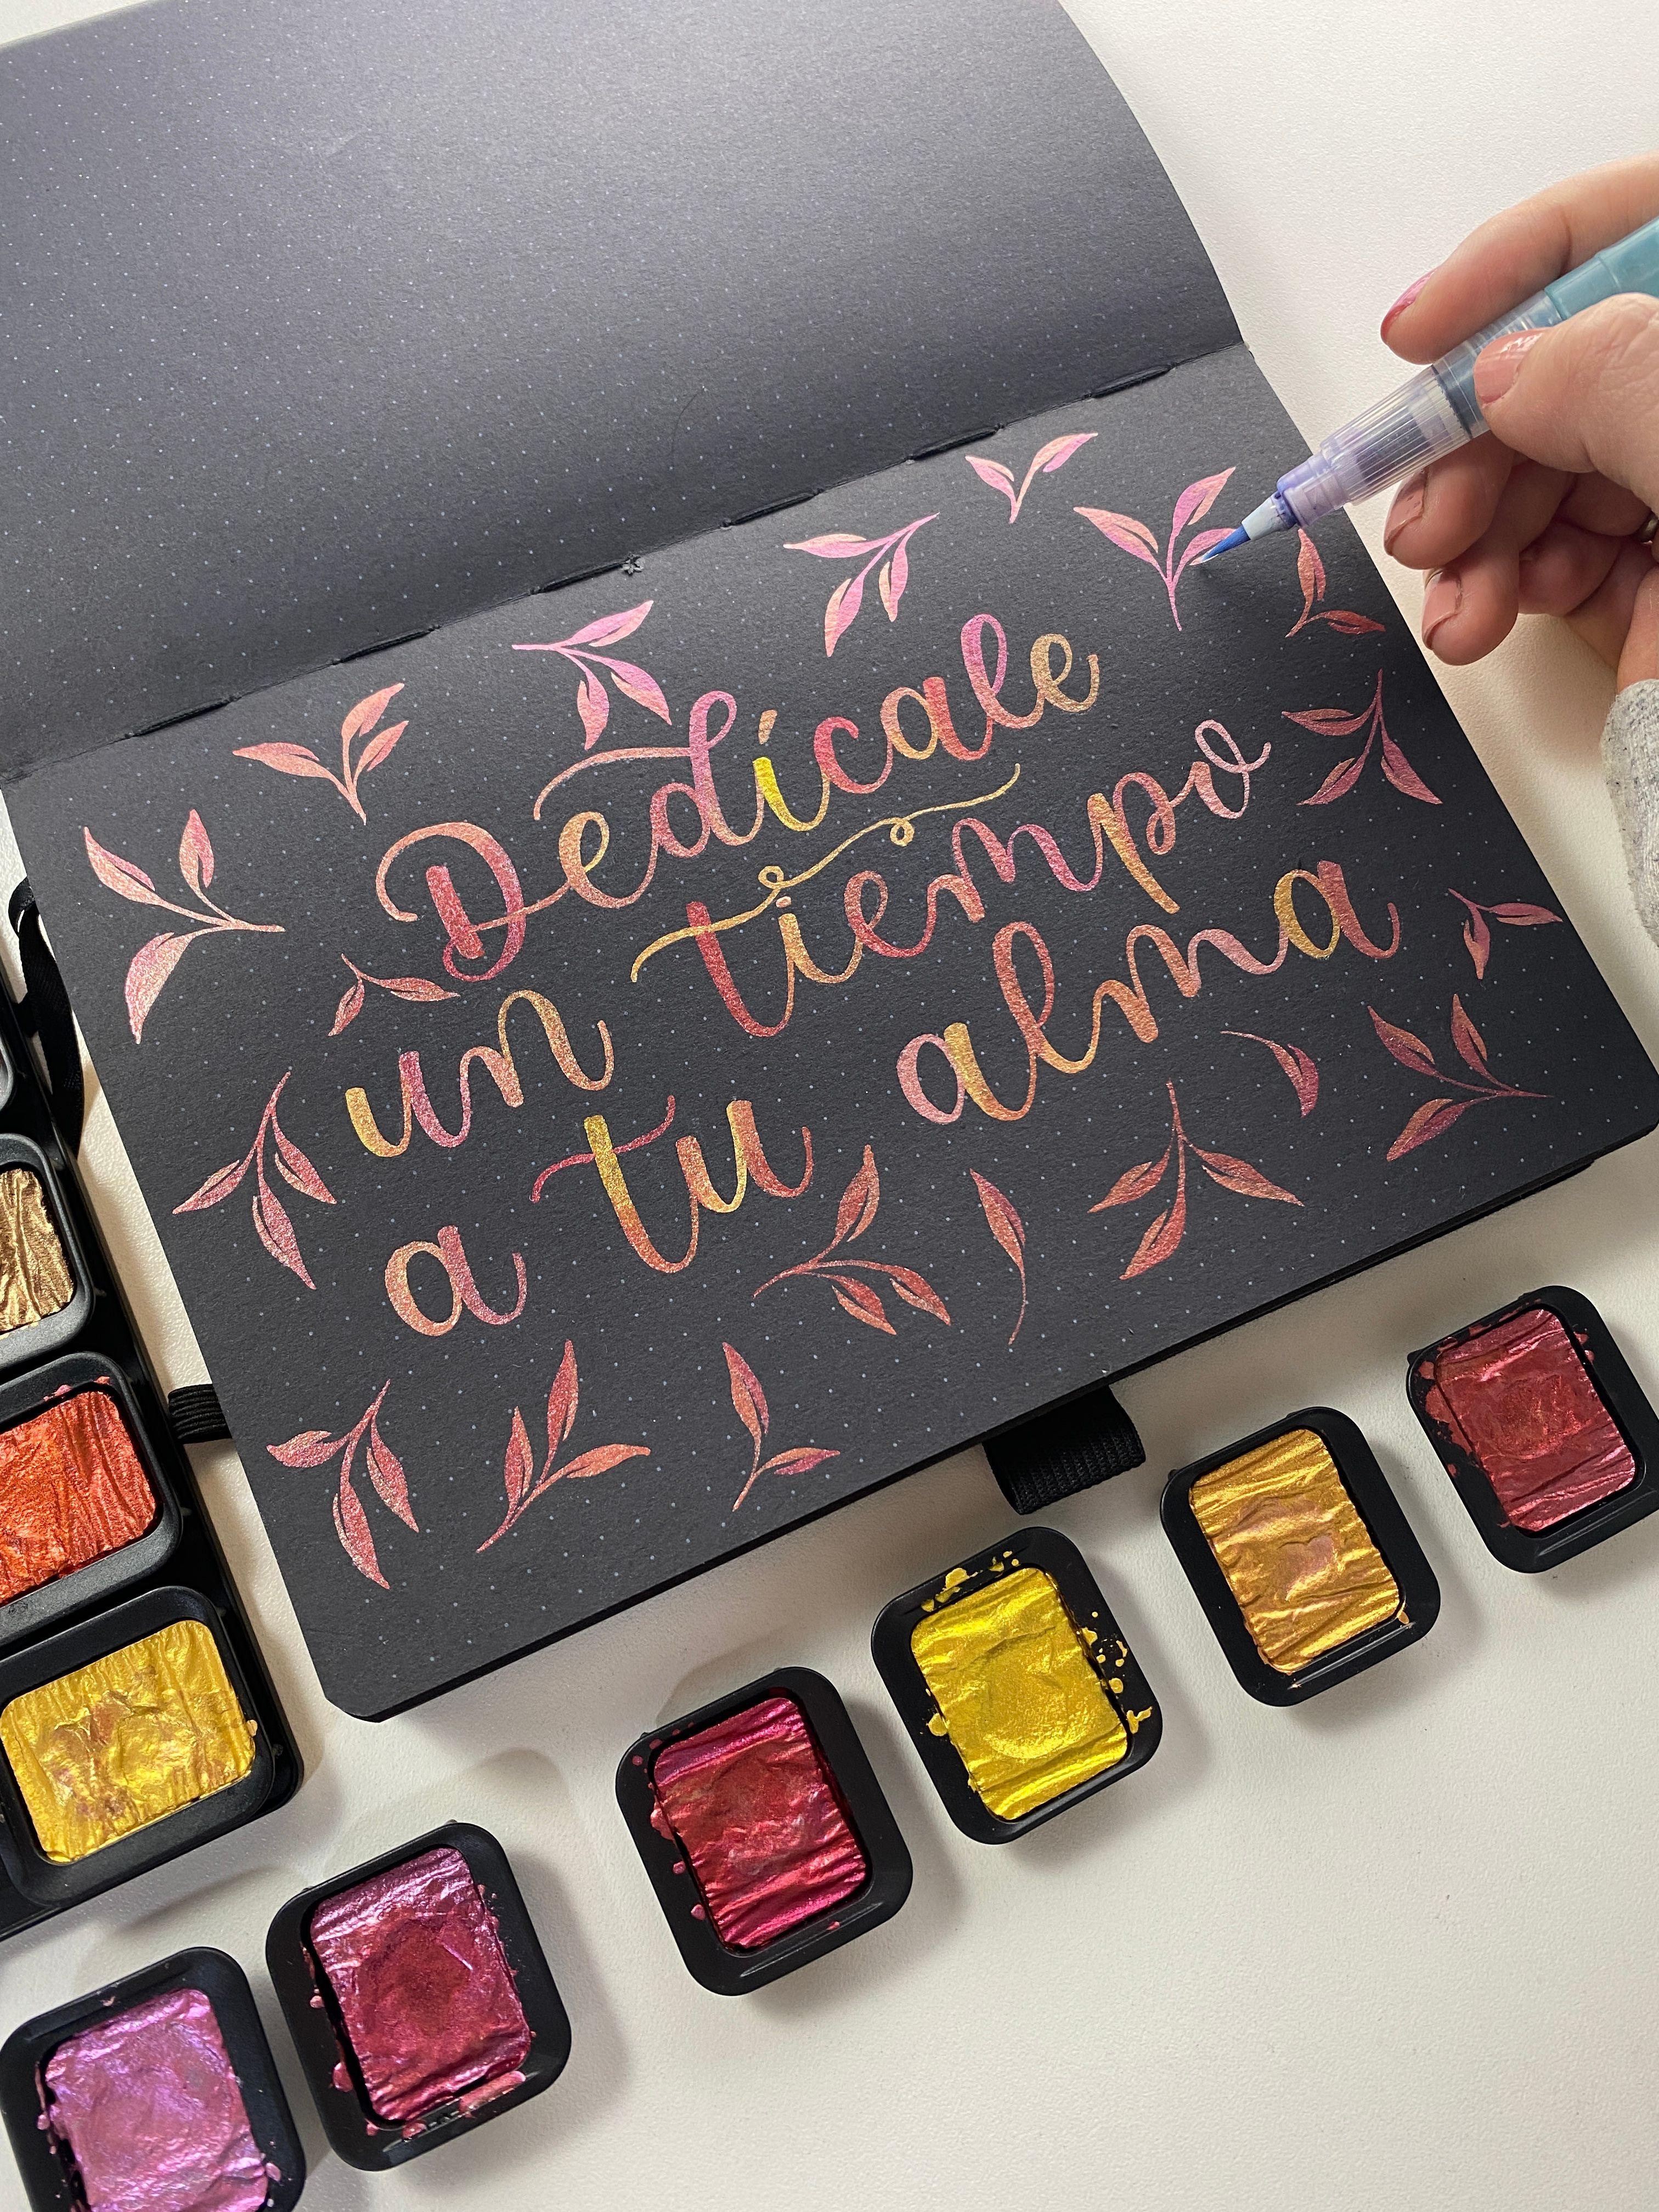 Dedícale
un tiempo
a tu alma